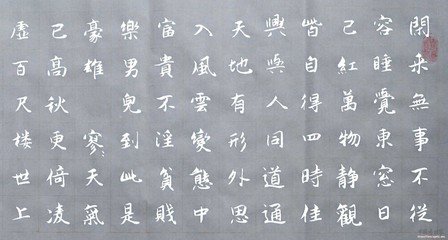 閑來無事不從
容睡覺東窗日
己紅萬物靜觀
皆自得四時佳
興與人同道通
天地有形外思
入風雲變態中
富貴不淫貧賤
樂男兒到此是
豪雄寥々天氣
已高秋更倚凌
虛百尺楼世上